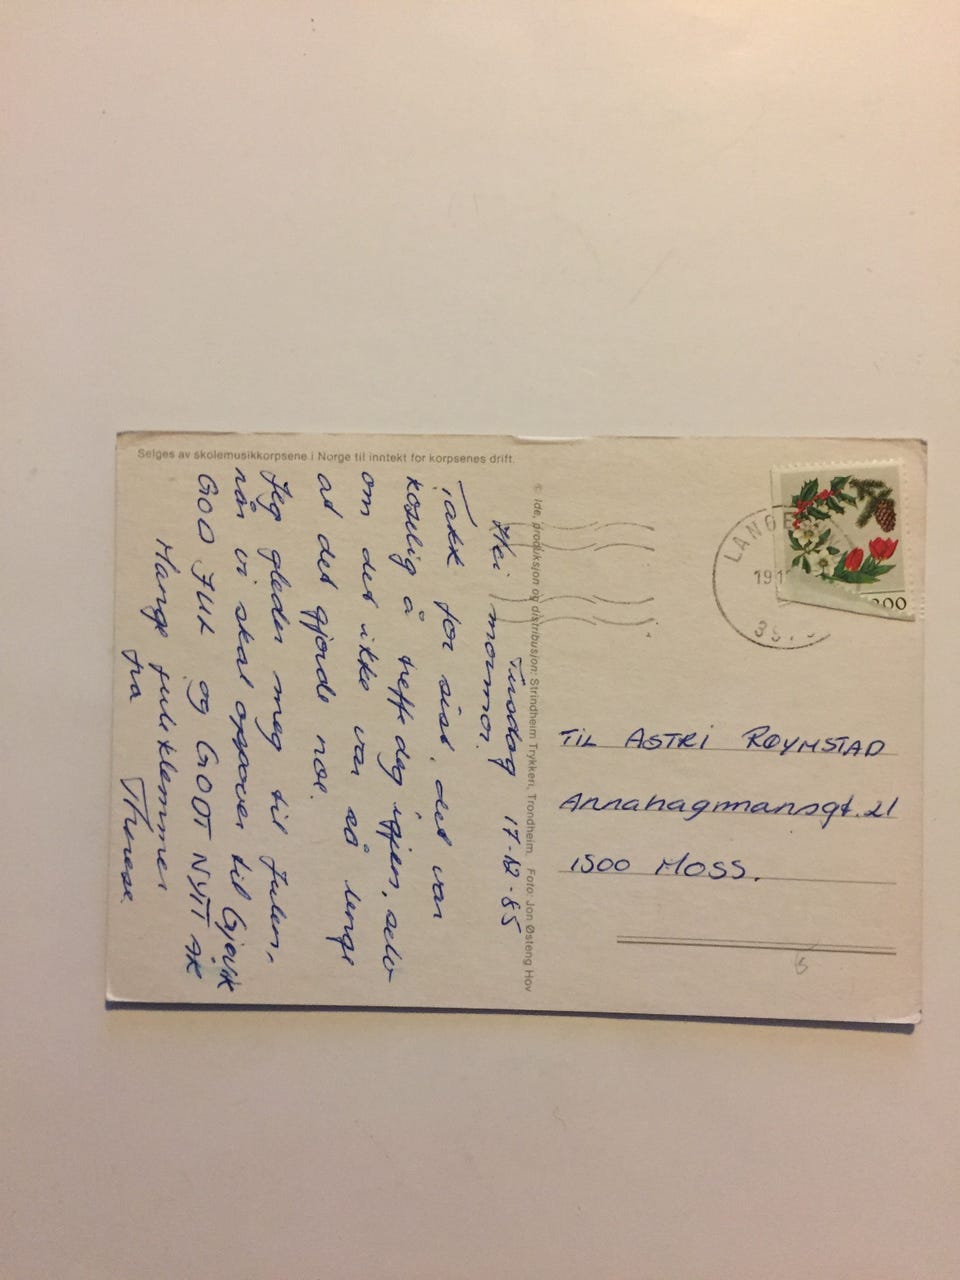 Selges av skolemusikkorpsene i Norge til inntekt for korpsenes drift.
Tirsdag 17-12-85
Hei mormor.
Takk for sist, det var
koselig å treffe deg igjen, selv
om det ikke var så lenge
at det gjorde noe.
Jeg gleder meg til Julen,
når vi skal oppover til Gjøvik
GOD JUL og GODT NYTT ÅR
Mange juleklemmer
fra Therese.
© Ide, produksjon og distribusjon: Strindheim Trykkeri, Trondheim. Foto: Jon Østeng Hov
LANGE
1912
39
00
TIL ASTRI RØYMSTAD
Annahagmansgt. 21
1500 MOSS.